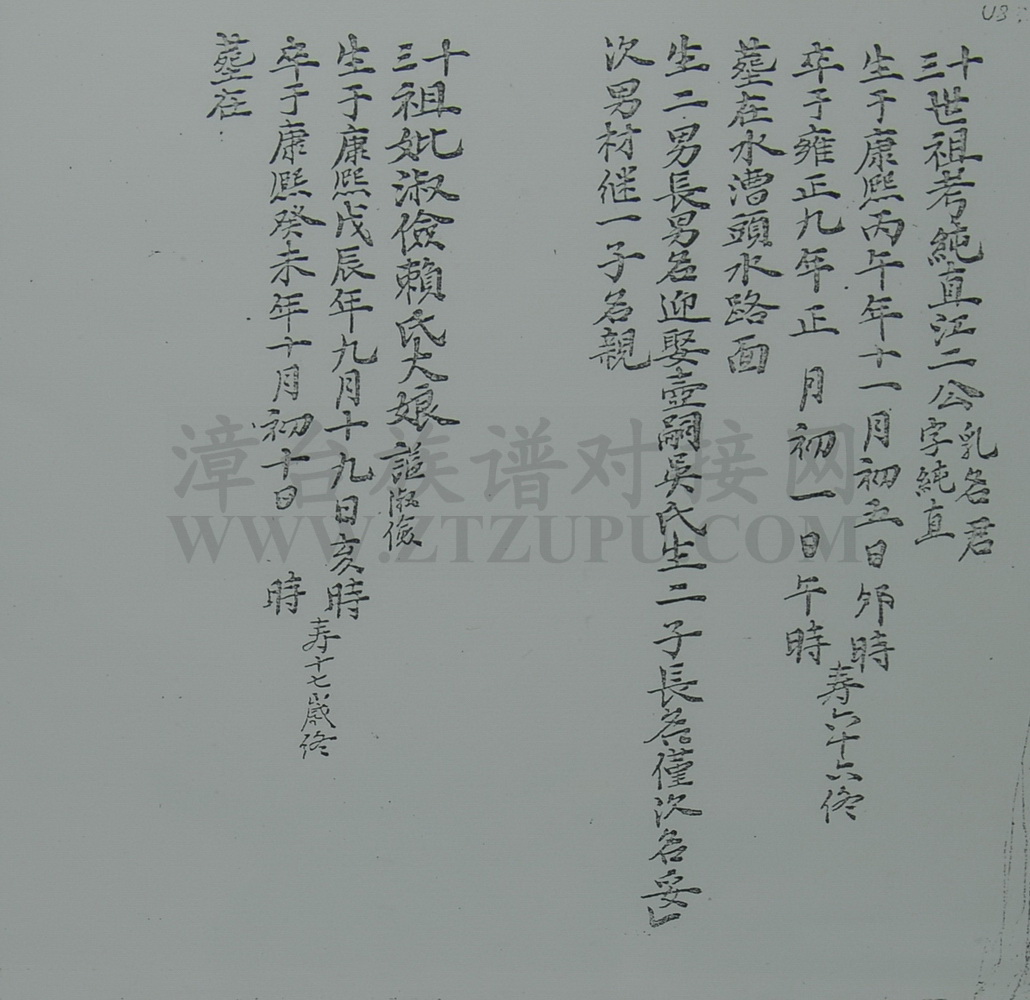 U3
十三世祖考純直江二公 乳名君 字純直
生于康熙丙午年十一月初五日卯時
卒于雍正九年正 月初一日午時
寿六十六終
塟在水漕頭水路面
生二男長男名迎娶壶嗣吳氏生二子長名僅次名妥
次男材継一子名親
十三祖妣淑儉賴氏大娘 謚淑儉
生于康熙戊辰年九月十九日亥時
卒于康熙癸未年十月初十日 時
寿十七歲終
塟在
漳台族谱对接网
WWW.ZTZUPU.COM